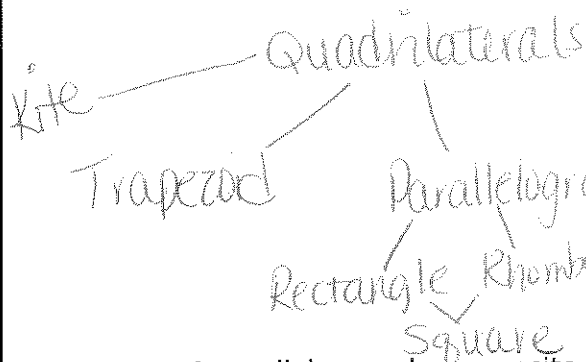 Quadrilaterals
Kite
Trapezoid
Parallelogr
Rectangle Rhomb
Square